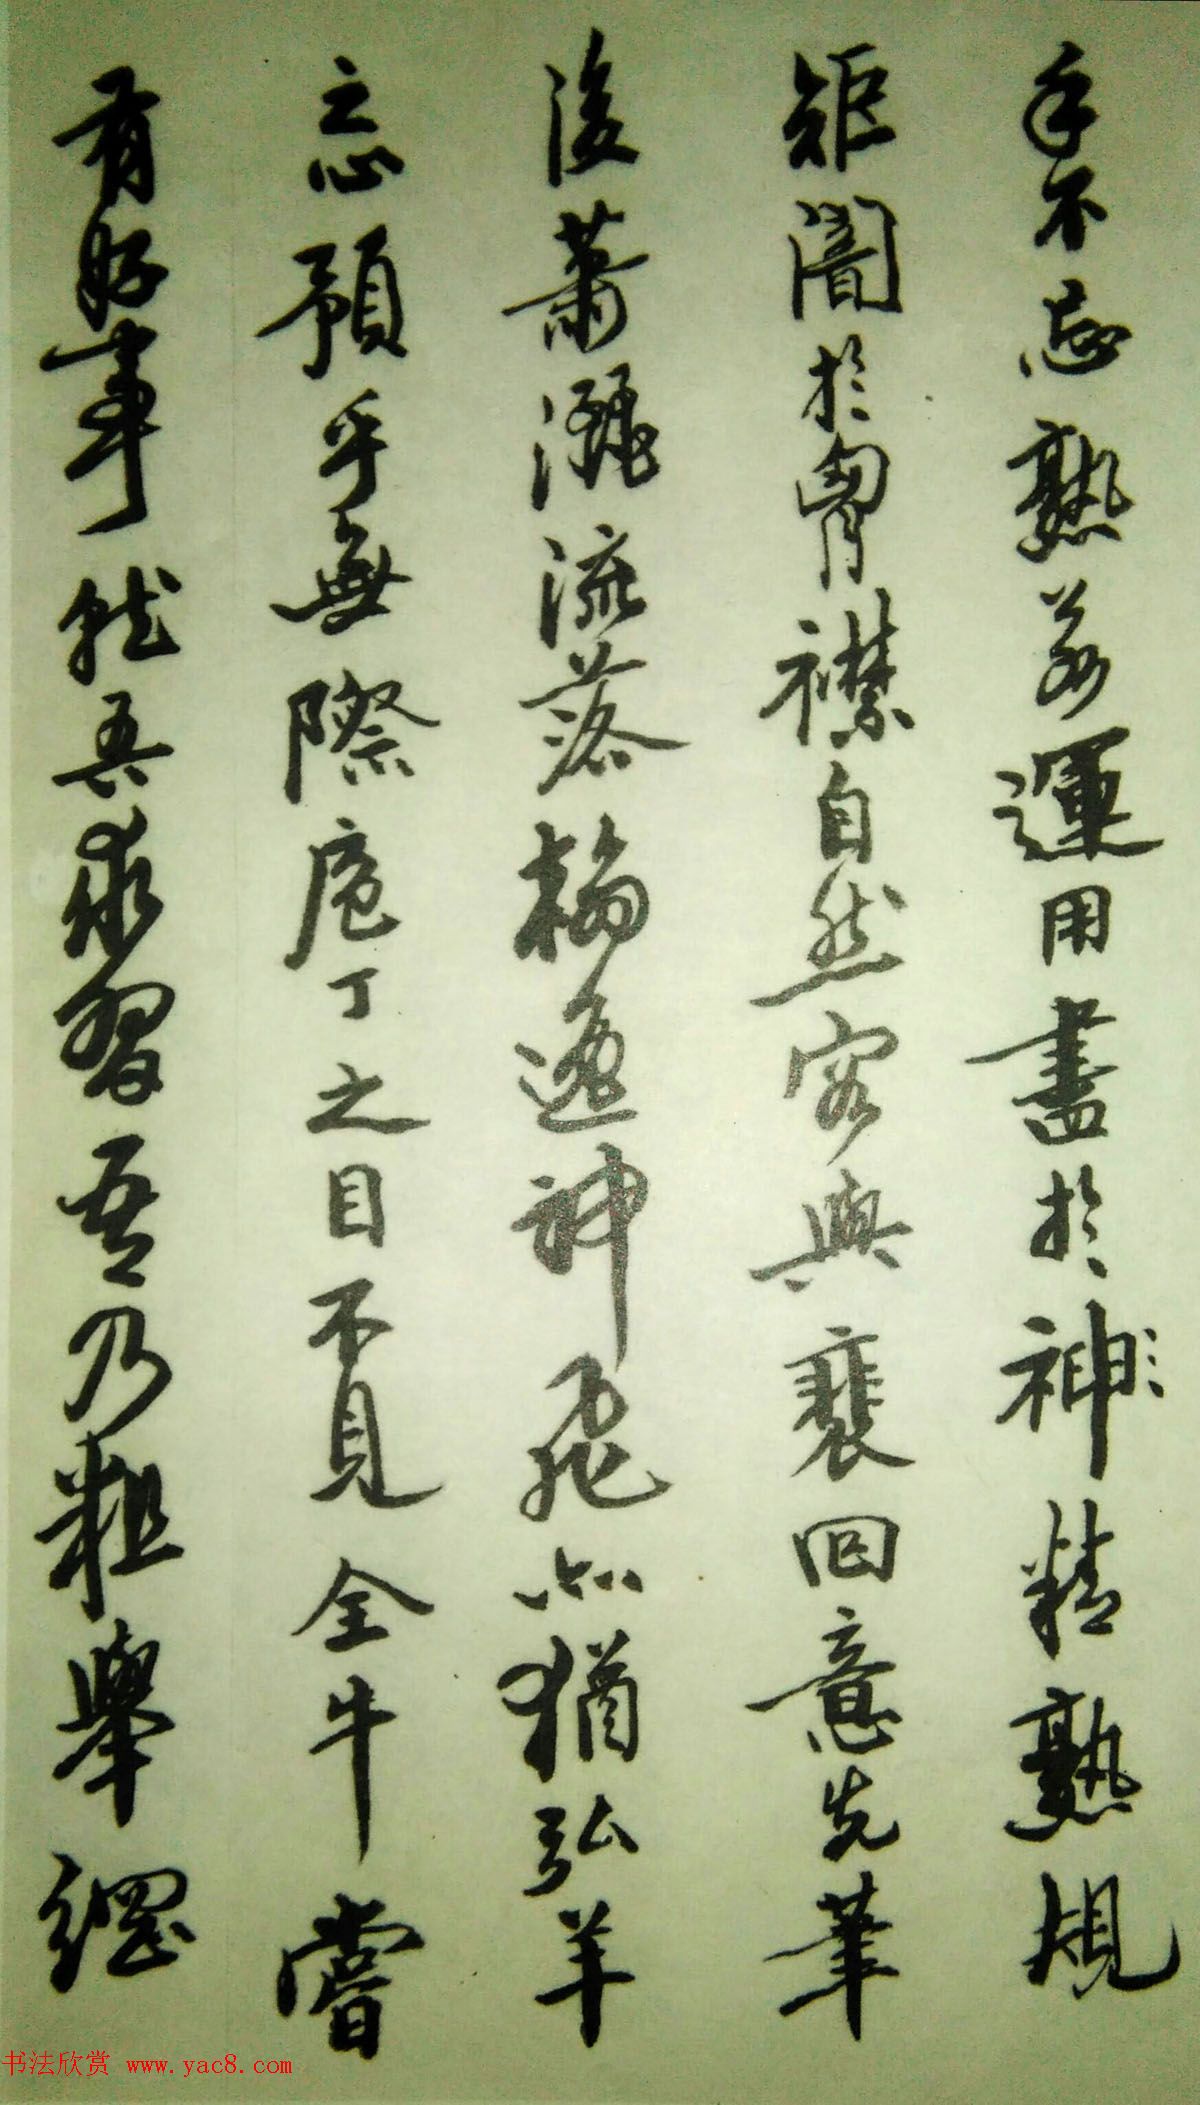 手不忘熟若運用盡於神精熟規
矩闇於胷襟自然容與裵回意先筆
後蕭灑流落翰逸神飛亦猶弘羊
之心預乎無際庖丁之目不見全牛嘗
有好事就吾求習吾乃粗舉綱
书法欣赏 www.yac8.com